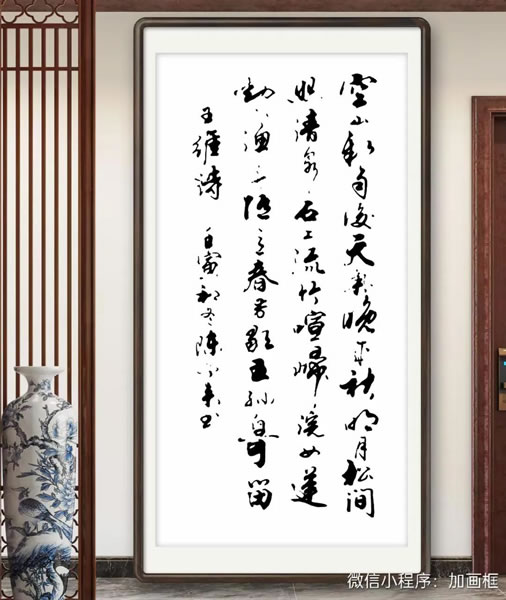 空山新雨後天氣晚来秋明月松间
照清泉石上流竹喧歸浣女蓮
動下漁舟随意春芳歇王孙自可留
王維詩 壬寅初冬陈来书
微信小程序：加画框